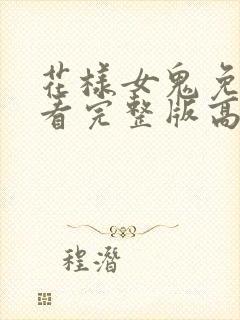 花样女鬼免
看完整版高
程潜